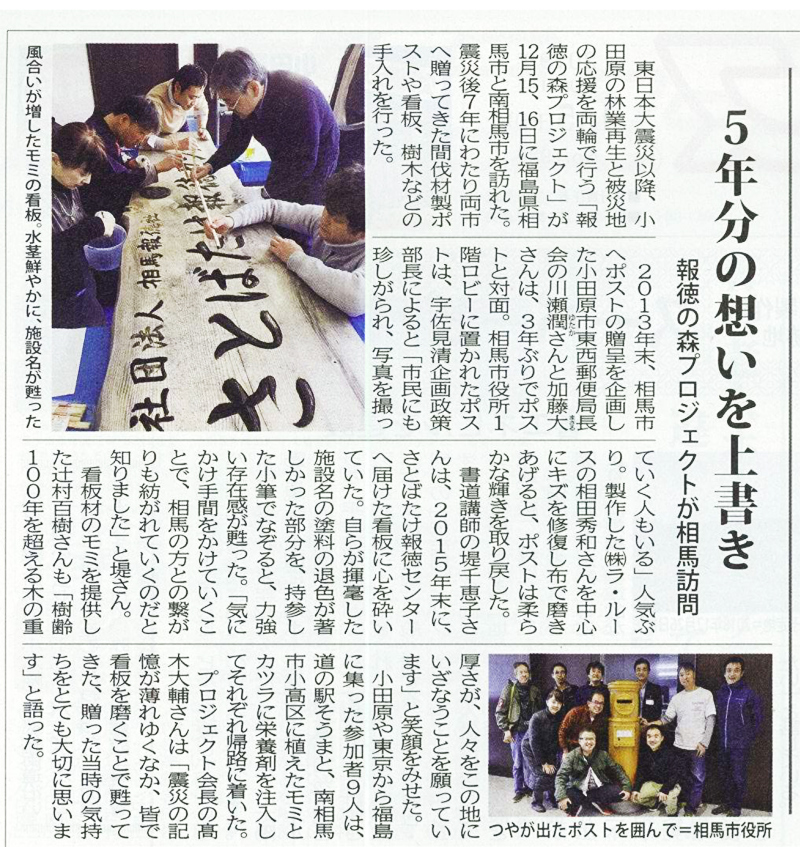 5年分の想いを上書き
報徳の森プロジェクトが相馬訪問
東日本大震災以降、小
田原の林業再生と被災地
の応援を両輪で行う「報
徳の森プロジェクト」が
12月15、16日に福島県相
馬市と南相馬市を訪れた。
震災後7年にわたり両市
へ贈ってきた間伐材製ポ
ストや看板、樹木などの
手入れを行った。
2013年末、相馬市
へポストの贈呈を企画し
た小田原市東西郵便局長
会の川瀬潤さんと加藤大
ゆたか
さんは、3年ぶりでポス
トと対面。相馬市役所1
階ロビーに置かれたポス
トは、宇佐見清企画政策
部長によると「市民にも
珍しがられ、写真を撮っ
ていく人もいる」人気ぶ
り。製作した㈱ラ・ル
スの相田秀和さんを中心
にキズを修復し布で磨き
あげると、ポストは柔ら
かな輝きを取り戻した。
書道講師の堤千恵子さ
んは、2015年末に、
さとばたけ報徳センター
へ届けた看板に心を砕い
ていた。自らが揮毫した
施設名の塗料の退色が著
しかった部分を、持参し
た小筆でなぞると、力強
い存在感が甦った。「気に
かけ手間をかけていくこ
とで、相馬の方との繋が
りも紡がれていくのだと
知りました」と堤さん。
看板材のモミを提供し
た辻村百樹さんも「樹齢
100年を超える木の重
厚さが、人々をこの地に
いざなうことを願ってい
ます」と笑顔をみせた。
小田原や東京から福島
に集った参加者9人は、
道の駅そうまと、南相馬
市小高区に植えたモミと
カツラに栄養剤を注入し
てそれぞれ帰路に着いた。
プロジェクト会長の髙
木大輔さんは「震災の記
憶が薄れゆくなか、皆で
看板を磨くことで甦って
きた、贈った当時の気持
ちをとても大切に思いま
す」と語った。
社団法人 相馬報徳社
さとばたけ
風合いが増したモミの看板。水茎鮮やかに、施設名が甦った
つやが出たポストを囲んで＝相馬市役所